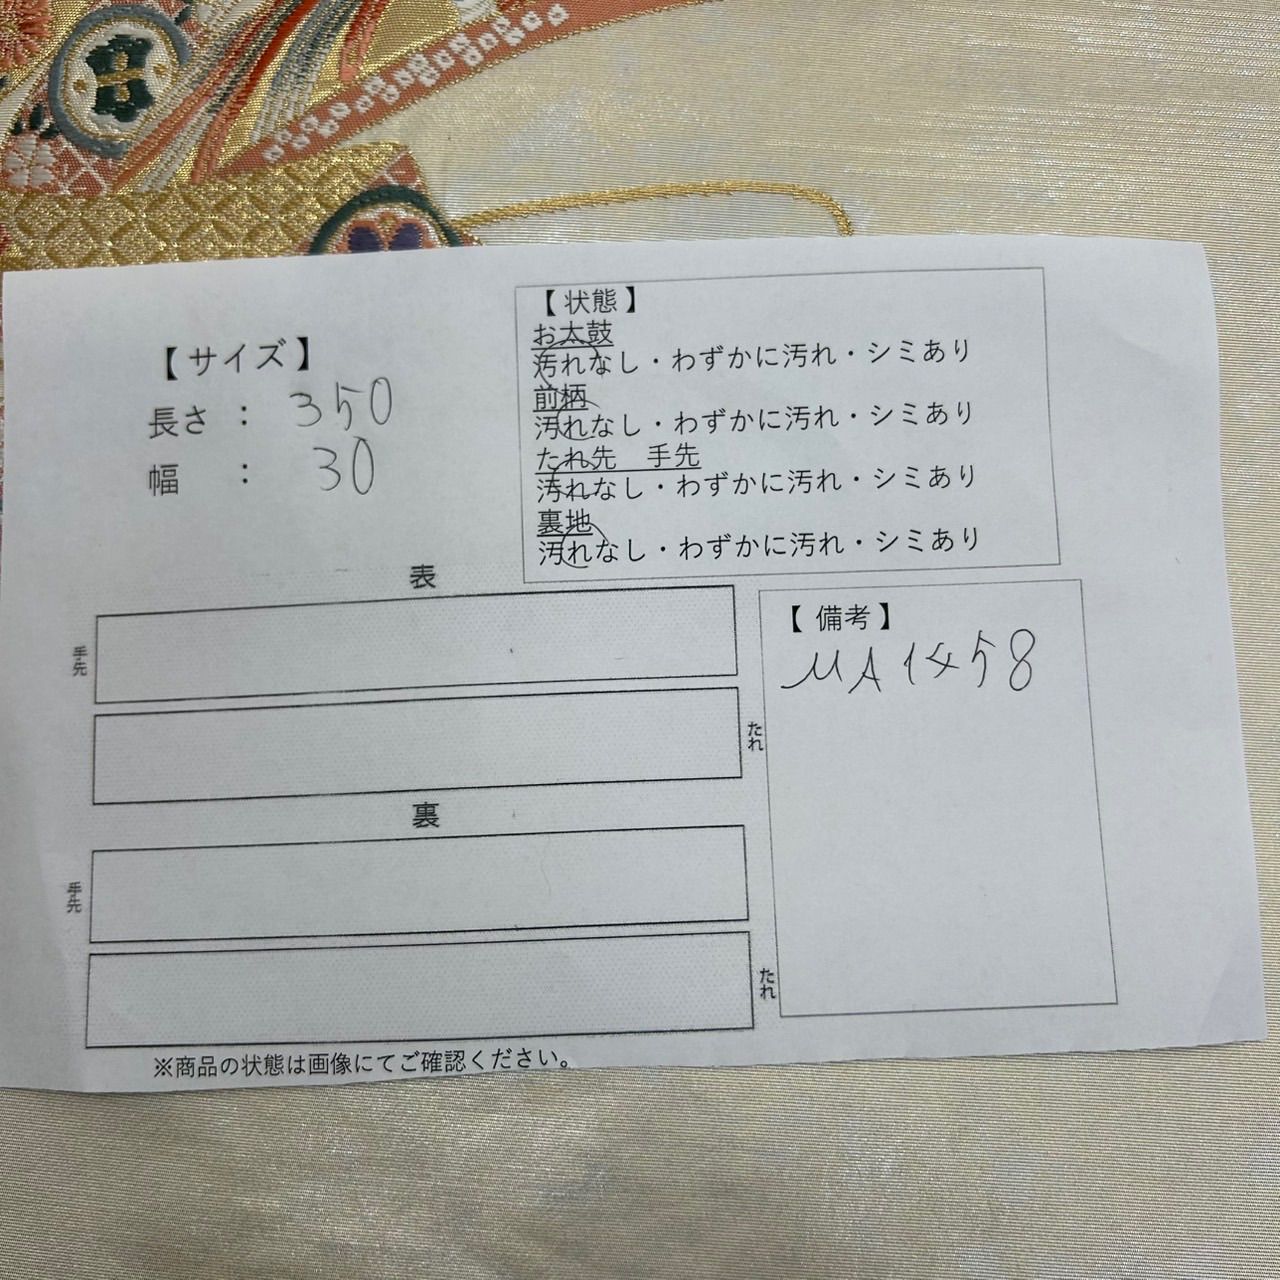 【サイズ】
長さ : 350
幅 : 30
【状態】
お太鼓
汚れなし・わずかに汚れ・シミあり
前柄
汚れなし・わずかに汚れ・シミあり
たれ先 手先
汚れなし・わずかに汚れ・シミあり
裏地
汚れなし・わずかに汚れ・シミあり
表
手先
たれ
裏
手先
たれ
【備考】
MA1458
※商品の状態は画像にてご確認ください。